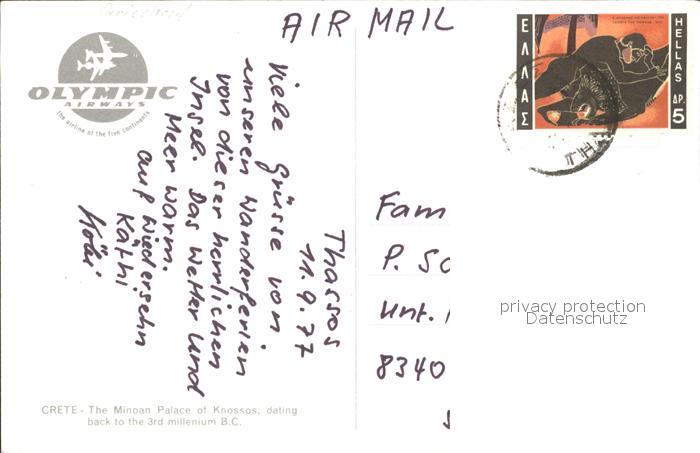 Griechenl
AIR MAIL
OLYMPIC
AIRWAYS
the airline of the five continents
Thassos
11.9.77
Viele Grüsse von
unseren Wanderferien
von dieser herrlichen
Insel. Das Wetter und
Meer warm.
auf Wiedersehn
Käthi
Köbi
CRETE - The Minoan Palace of Knossos, dating
back to the 3rd millenium B.C.
ΕΛΛΑΣ
HELLAS
ΔΡ. 5
Fam
P. Sc
Unt.
8340
privacy protection
Datenschutz